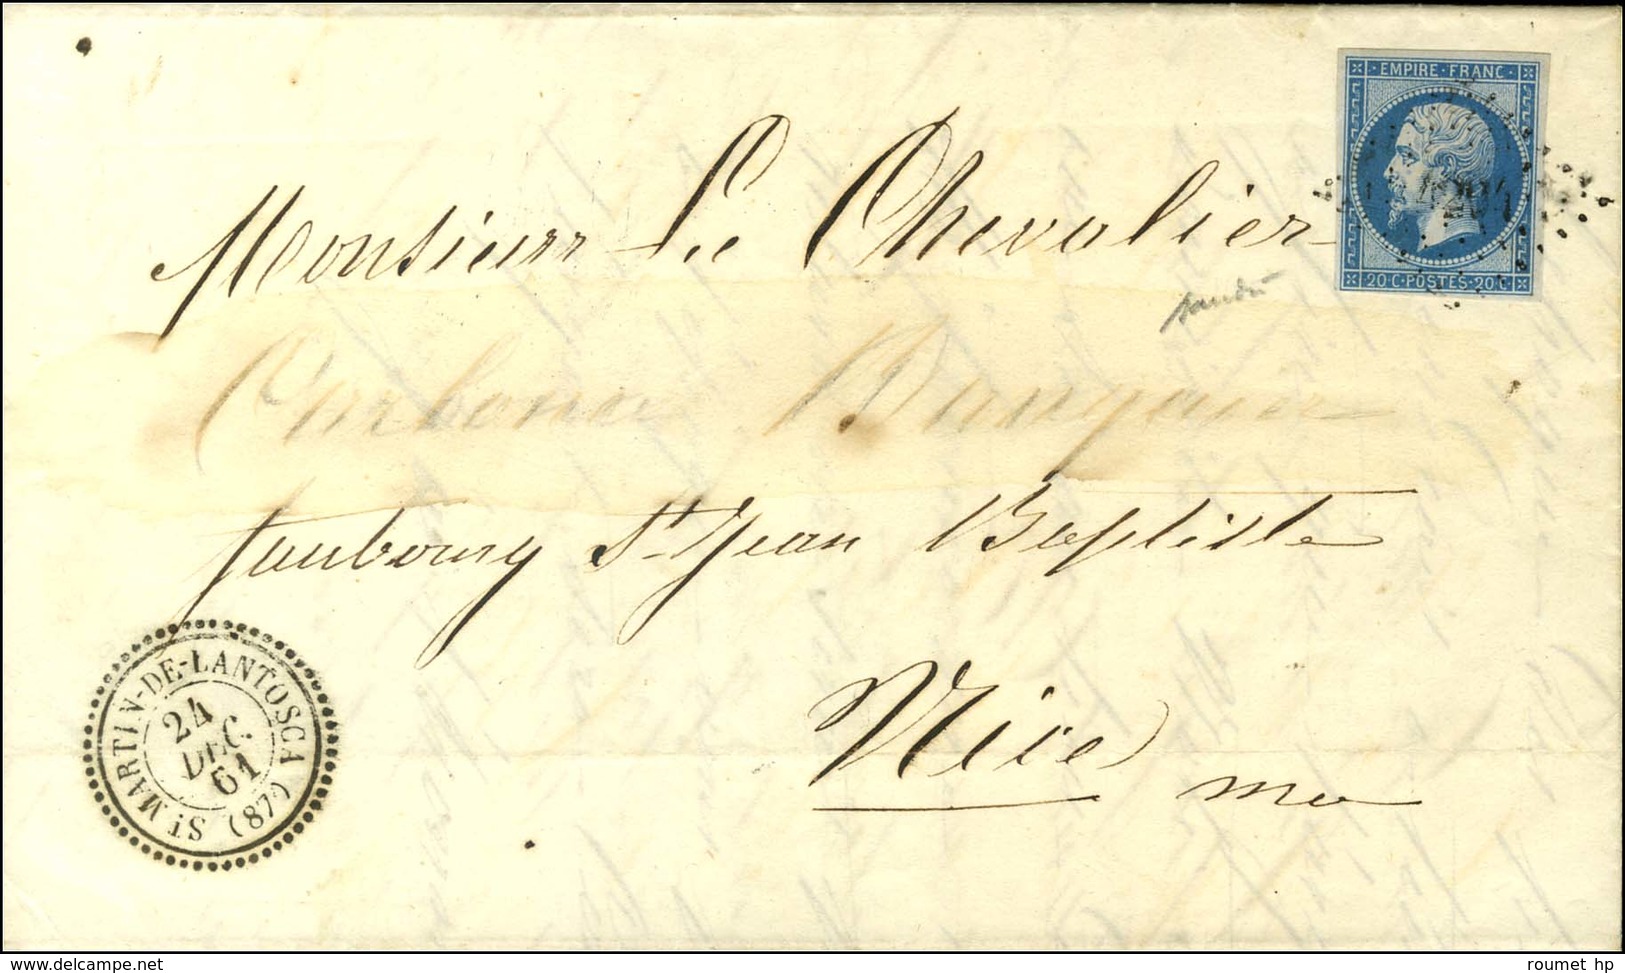 EMPIRE·FRANC
4201
20·C·POSTES·20·C
Monsieur Le Chevalier
Carbone Banquier
faubourg St Jean Baptiste
Nice
ST MARTIN-DE-LANTOSCA (87)
24
DEC.
61
www.delcampe.net
roumet hp